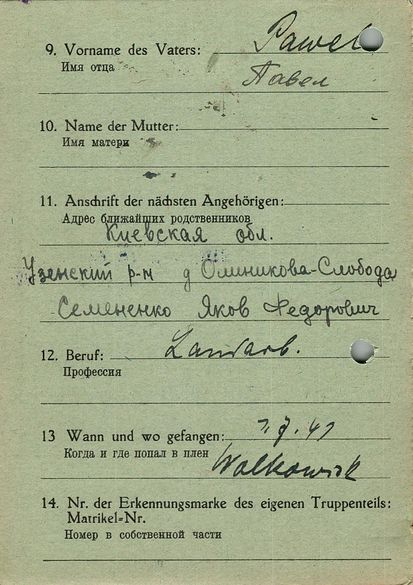 9. Vorname des Vaters: Pawel
Имя отца Павел
10. Name der Mutter:
Имя матери
11. Anschrift der nächsten Angehörigen:
Адрес ближайших родственников
Киевская обл.
Узенский р-н д Олиникова-Слобода
Семененко Яков Федорович
12. Beruf: Landarb.
Профессия
13 Wann und wo gefangen: 7.7.41
Когда и где попал в плен Wolkowisk
14. Nr. der Erkennungsmarke des eigenen Truppenteils:
Matrikel=Nr.
Номер в собственной части